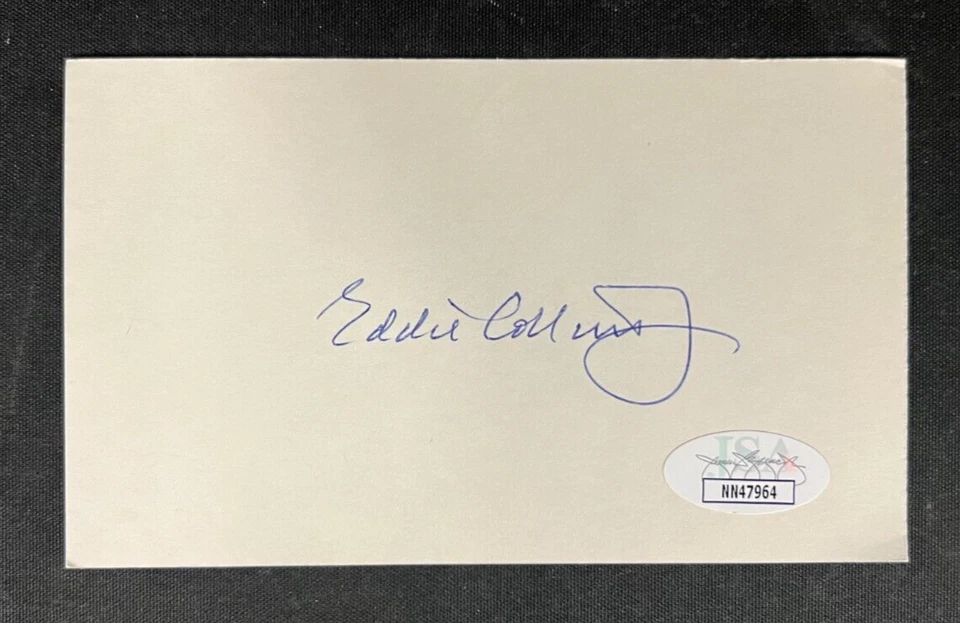 Eddie Collins Jr
JSA
NN47964